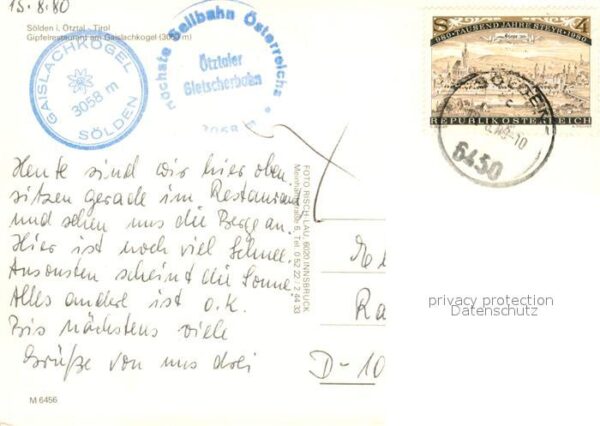 15.8.80
Sölden i. Ötztal - Tirol
Gipfelrestaurant am Gaislachkogel (3050 m)
GAISLACHKOGEL
3058 m
SÖLDEN
Höchste Seilbahn Österreichs
Ötztaler
Gletscherbahn
3058 m
S 4
980-TAUSEND JAHRE STEYR-1980
REPUBLIK ÖSTERREICH
SÖLDEN
6450
Heute sind wir hier oben,
sitzen gerade im Restaurant
und sehen uns die Berge an.
Hier ist noch viel Schnee.
Ansonsten scheint die Sonne.
Alles andere ist o.k.
Bis nächstens viele
Grüße von uns drei
FOTO RISCH-LAU, 6020 INNSBRUCK
Meinhardstraße 5, Tel. 0 52 22 / 2 64 33
Ra
D-10
privacy protection
Datenschutz
M 6456